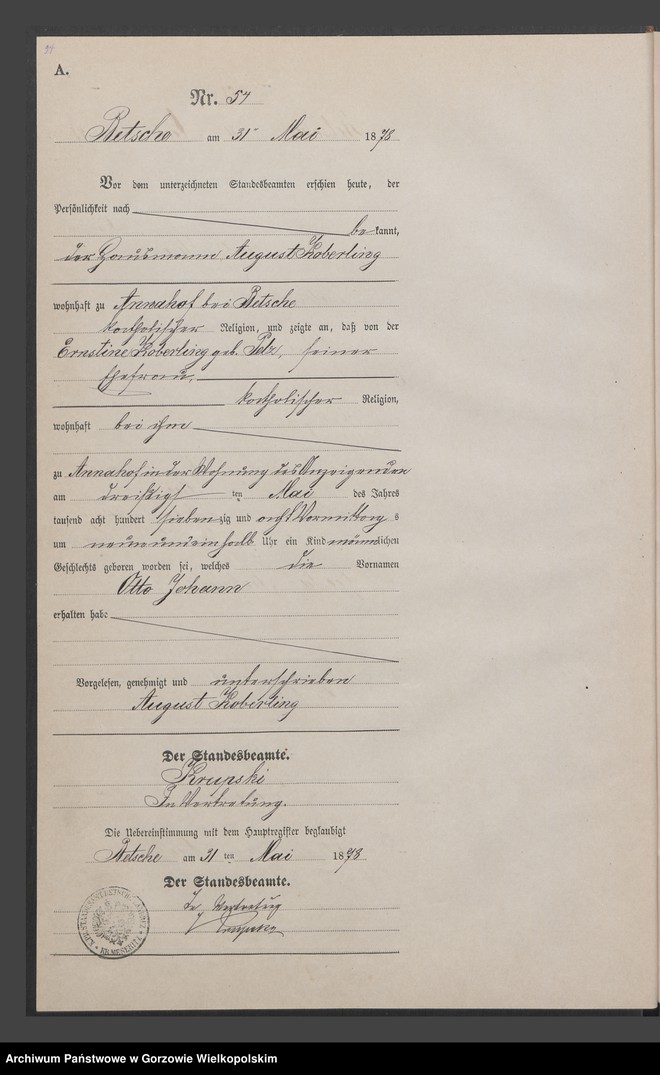 A.
Nr. 54
Betsche am 31 Mai 1878
Vor dem unterzeichneten Standesbeamten erschien heute, der
Persönlichkeit nach
be kannt,
der Hausmann August Koberling
wohnhaft zu Annahof bei Betsche
katholischer Religion, und zeigte an, daß von der
Ernstine Koberling geb. Pelz, seiner
Ehefrau,
katholischer Religion,
wohnhaft bei ihm
zu Annahof in der Wohnung des Anzeigenden
am dreißigsten Mai des Jahres
tausend acht hundert siebenzig und acht Vormittags
um neun und ein halb Uhr ein Kind männlichen
Geschlechts geboren worden sei, welches die Vornamen
Otto Johann
erhalten habe
Vorgelesen, genehmigt und unterschrieben
August Koberling
Der Standesbeamte.
Krupski
In Vertretung.
Die Uebereinstimmung mit dem Hauptregister beglaubigt
Betsche am 31 ten Mai 1878
Der Standesbeamte.
In Vertretung
Krupski
Archiwum Państwowe w Gorzowie Wielkopolskim